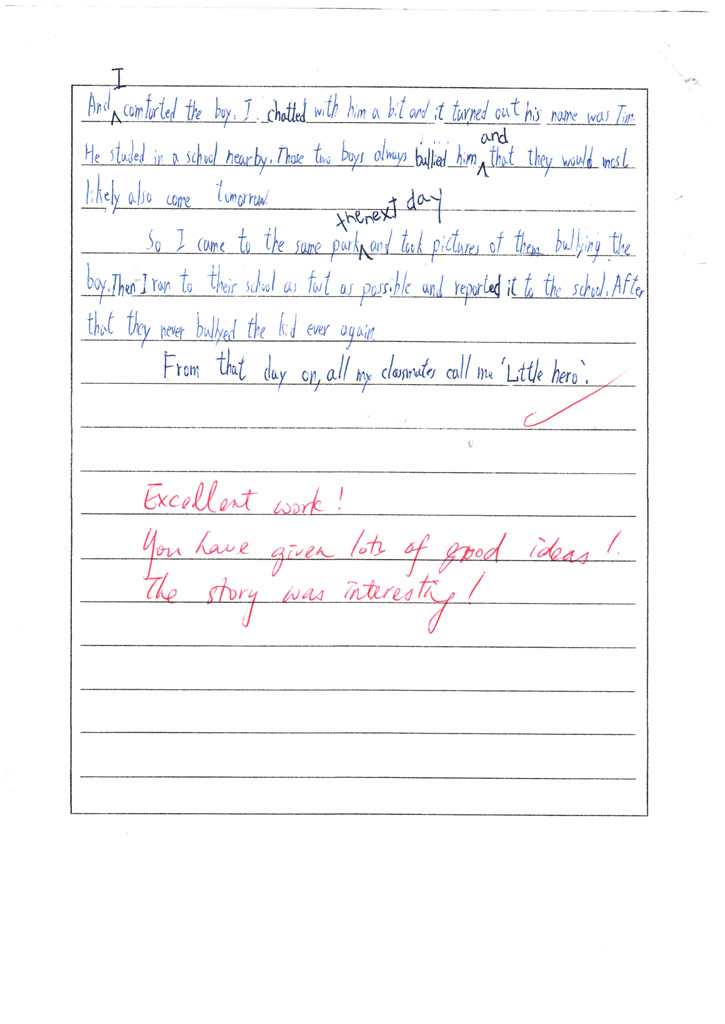 I
And ‸ comforted the boy. I chatted with him a bit and it turned out his name was Tim.
and
He studed in a school nearby. Those two boys always bullied him ‸ that they would most
likely also come tumorrow.
the next day
So I came to the same park ‸ and took pictures of them bullying the
boy. Then I ran to their school as fast as possible and reported it to the school. After
that they never bullyed the kid ever again.
From that day on, all my classmates call me 'Little hero'.
Excellent work!
You have given lots of good ideas!
The story was interesting!